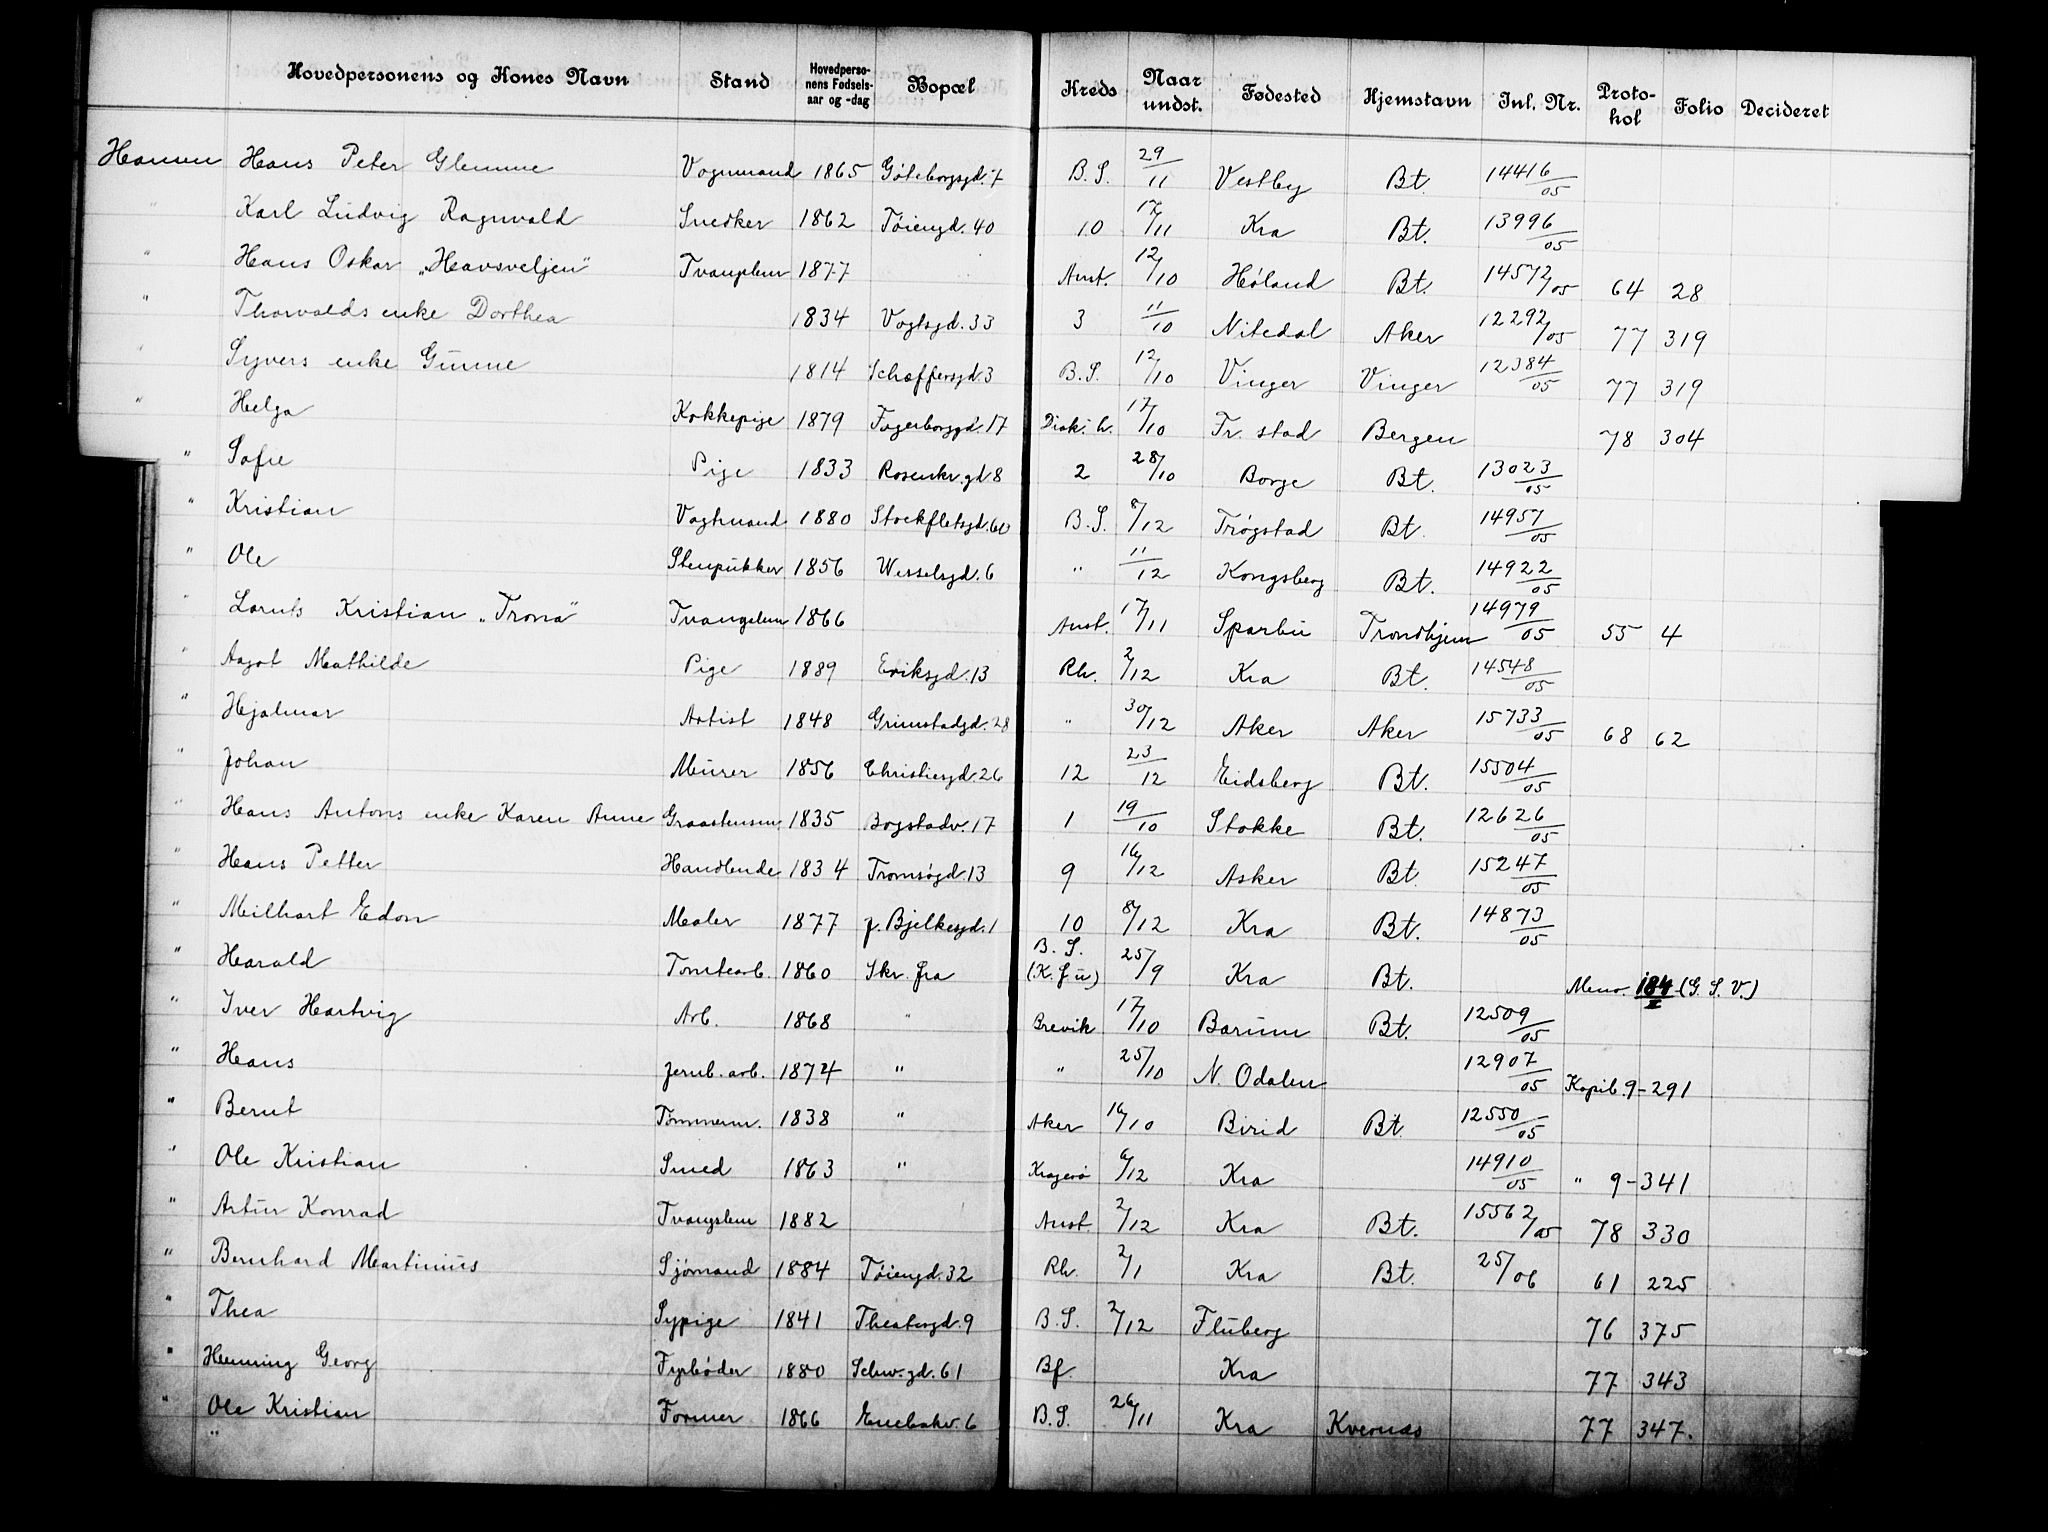 Hovedpersonens og Kones Navn Stand Hovedperso-nens Fødsels-aar og -dag Bopæl Kreds Naar undst. Fødested Hjemstavn Inl. Nr. Proto-kol Folio Decideret
Hansen Hans Peter Glemme Vognmand 1865 Göteborgsgd. 7 B. S. 29/11 Vestby Bt. 14416/05
" Karl Ludvig Ragnvald Snedker 1862 Tøiengd. 40 10 17/11 Kra Bt. 13996/05
" Hans Oskar „Havsveljen" Tvangslem 1877 Anst. 12/10 Høland Bt. 14572/05 64 28
" Thorvalds enke Dorthea 1834 Vogtsgd. 33 3 11/10 Nitedal Aker 12292/05 77 319
" Syvers enke Gunne 1814 Schaffersgd. 3 B. S. 12/10 Vinger Vinger 12384/05 77 319
" Helga Kokkepige 1879 Fagerborggd. 17 Diak. h. 17/10 Fr. stad Bergen 78 304
" Sofie Pige 1833 Rosenkr. gd 8 2 28/10 Borge Bt. 13023/05
" Kristian Vagtmand 1880 Stockfletsgd. 60 B. S. 8/12 Trøgstad Bt. 14957/05
" Ole Stenpukker 1856 Wesselsgd. 6 " 11/12 Kongsberg Bt. 14922/05
" Lornts Kristian „Trona" Tvangslem 1866 Anst. 17/11 Sparbu Trondhjem 14979/05 55 4
" Aagot Mathilde Pige 1889 Eriksgd. 13 Rh. 2/12 Kra Bt. 14548/05
" Hjalmar Artist 1848 Grimstadgd. 28 " 30/12 Aker Aker 15733/05 68 62
" Johan Murer 1856 Christiesgd. 26 12 23/12 Eidsberg Bt. 15504/05
" Hans Antons enke Karen Anne Graastensm. 1835 Bogstadv. 17 1 19/10 Stokke Bt. 12626/05
" Hans Petter Handlende 1834 Tromsøgd. 13 9 16/12 Asker Bt. 15247/05
" Milhart Edon Maler 1877 J. Bjelkesgd. 1 10 8/12 Kra Bt. 14873/05
" Harald Tomtearb. 1860 Skr. fra B. S. (K. f u) 25/9 Kra Bt. Meno. 184 II (G. S. V.)
" Iver Hartvig Arb. 1868 " Brevik 17/10 Bærum Bt. 12509/05
" Hans Jernb. arb. 1874 " " 25/10 N. Odalen 12907/05 Kopib. 9-291
" Bernt Tømmerm. 1838 " Aker 16/10 Birid Bt. 12550/05
" Ole Kristian Smed 1863 " Kragerø 6/12 Kra 14910/05 " 9-341
" Artur Konrad Tvangslem 1882 Anst. 2/12 Kra Bt. 15562/05 78 330
" Bernhard Martinius Sjømand 1884 Tøiengd. 32 Rh. 2/1 Kra Bt. 25/06 61 225
" Thea Sypige 1841 Theatergd. 9 B. S. 2/12 Fluberg 76 375
" Henning Georg Fyrbøder 1880 Schw. gd. 61 Bf. Kra 77 343
" Ole Kristian Former 1866 Enebakv. 6 B. S. 26/11 Kra Kvernæs 77 347.
"